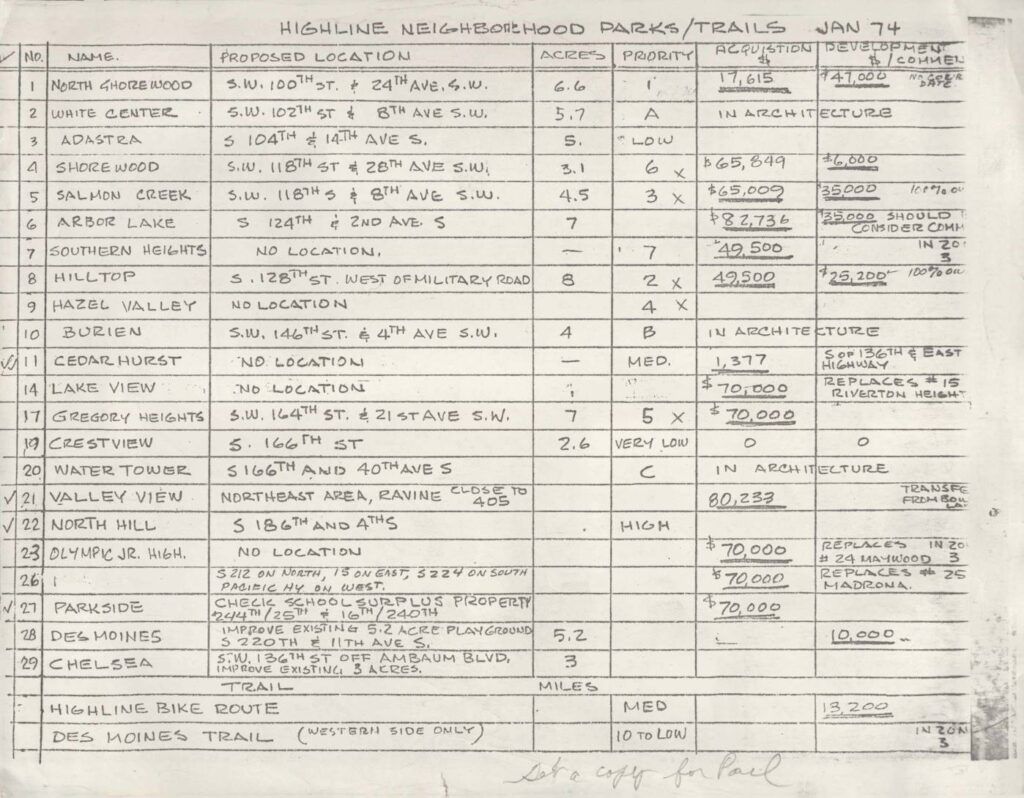 HIGHLINE NEIGHBORHOOD PARKS/TRAILS JAN 74
✓ NO. NAME. PROPOSED LOCATION ACRES PRIORITY ACQUISTION $ DEVELOPMENT $ /COMMEN
1 NORTH SHOREWOOD S.W. 100TH ST. & 24TH AVE. S.W. 6.6 1 17,615 $47,000 DATE.
2 WHITE CENTER S.W. 102TH ST & 8TH AVE S.W. 5.7 A IN ARCHITECTURE
3 ADASTRA S 104TH & 14TH AVE S. 5. LOW
4 SHOREWOOD S.W. 118TH ST & 28TH AVE S.W. 3.1 6 X $65,849 $6,000
5 SALMON CREEK S.W. 118TH S & 8TH AVE S.W. 4.5 3 X $65,009 $35000 100%
6 ARBOR LAKE S 124TH & 2ND AVE. S 7 $82,736 $35,000 SHOULD CONSIDER COMM
7 SOUTHERN HEIGHTS NO LOCATION. — 7 49,500 IN ZO 3
8 HILLTOP S. 128TH ST. WEST OF MILITARY ROAD 8 2 X 49,500 $25,200 100%
9 HAZEL VALLEY NO LOCATION 4 X
10 BURIEN S.W. 146TH ST. & 4TH AVE S.W. 4 B IN ARCHITECTURE
✓ 11 CEDARHURST NO LOCATION — MED. 1,377 S OF 136TH & EAST HIGHWAY
14 LAKE VIEW NO LOCATION $70,000 REPLACES #15 RIVERTON HEIGHT
17 GREGORY HEIGHTS S.W. 164TH ST. & 21ST AVE S.W. 7 5 X $70,000
19 CRESTVIEW S. 166TH ST 2.6 VERY LOW 0 0
20 WATER TOWER S 166TH AND 40TH AVE S C IN ARCHITECTURE
✓ 21 VALLEY VIEW NORTHEAST AREA, RAVINE CLOSE TO 405 80,233 TRANSFE FROM
✓ 22 NORTH HILL S 186TH AND 4TH S HIGH
23 OLYMPIC JR. HIGH. NO LOCATION $70,000 REPLACES IN ZO #24 MAYWOOD 3
26 1 S 212 ON NORTH, 15 ON EAST, S 224 ON SOUTH PACIFIC HY ON WEST. $70,000 REPLACES # 25 MADRONA.
✓ 27 PARKSIDE CHECK SCHOOL SURPLUS PROPERTY 244TH/25TH & 16TH/240TH $70,000
28 DES MOINES IMPROVE EXISTING 5.2 ACRE PLAYGROUND S 220TH & 11TH AVE S. 5.2 10,000
29 CHELSEA S.W. 136TH ST OFF AMBAUM BLVD. IMPROVE EXISTING 3 ACRES. 3
TRAIL MILES
HIGHLINE BIKE ROUTE MED 13,200
DES MOINES TRAIL (WESTERN SIDE ONLY) 10 TO LOW IN ZON 3
a copy for Paul